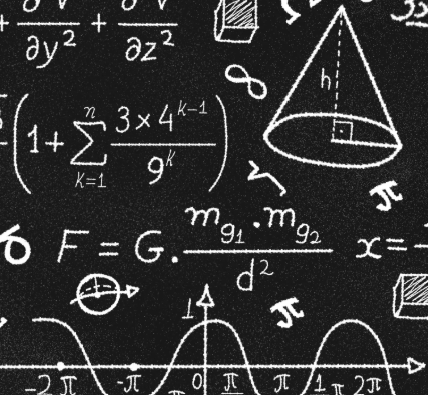 + ∂y² + ∂z²
∞
h
(1+ ∑ⁿₖ₌₁ 3×4ᵏ⁻¹/9ᵏ)
π
F = G. m_g₁.m_g₂/d² x=
π
1
-2π -π 0 π π 2π